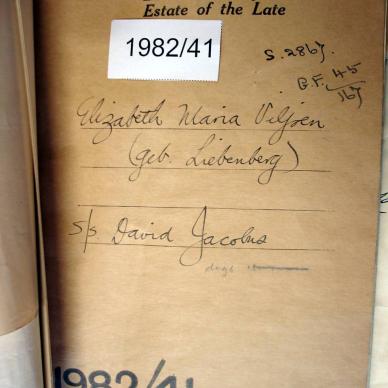 Estate of the Late
1982/41
S. 2867.
B.F. 45/167
Elizabeth Maria Viljoen
(geb. Liebenberg)
s/s. David Jacobus
1982/41